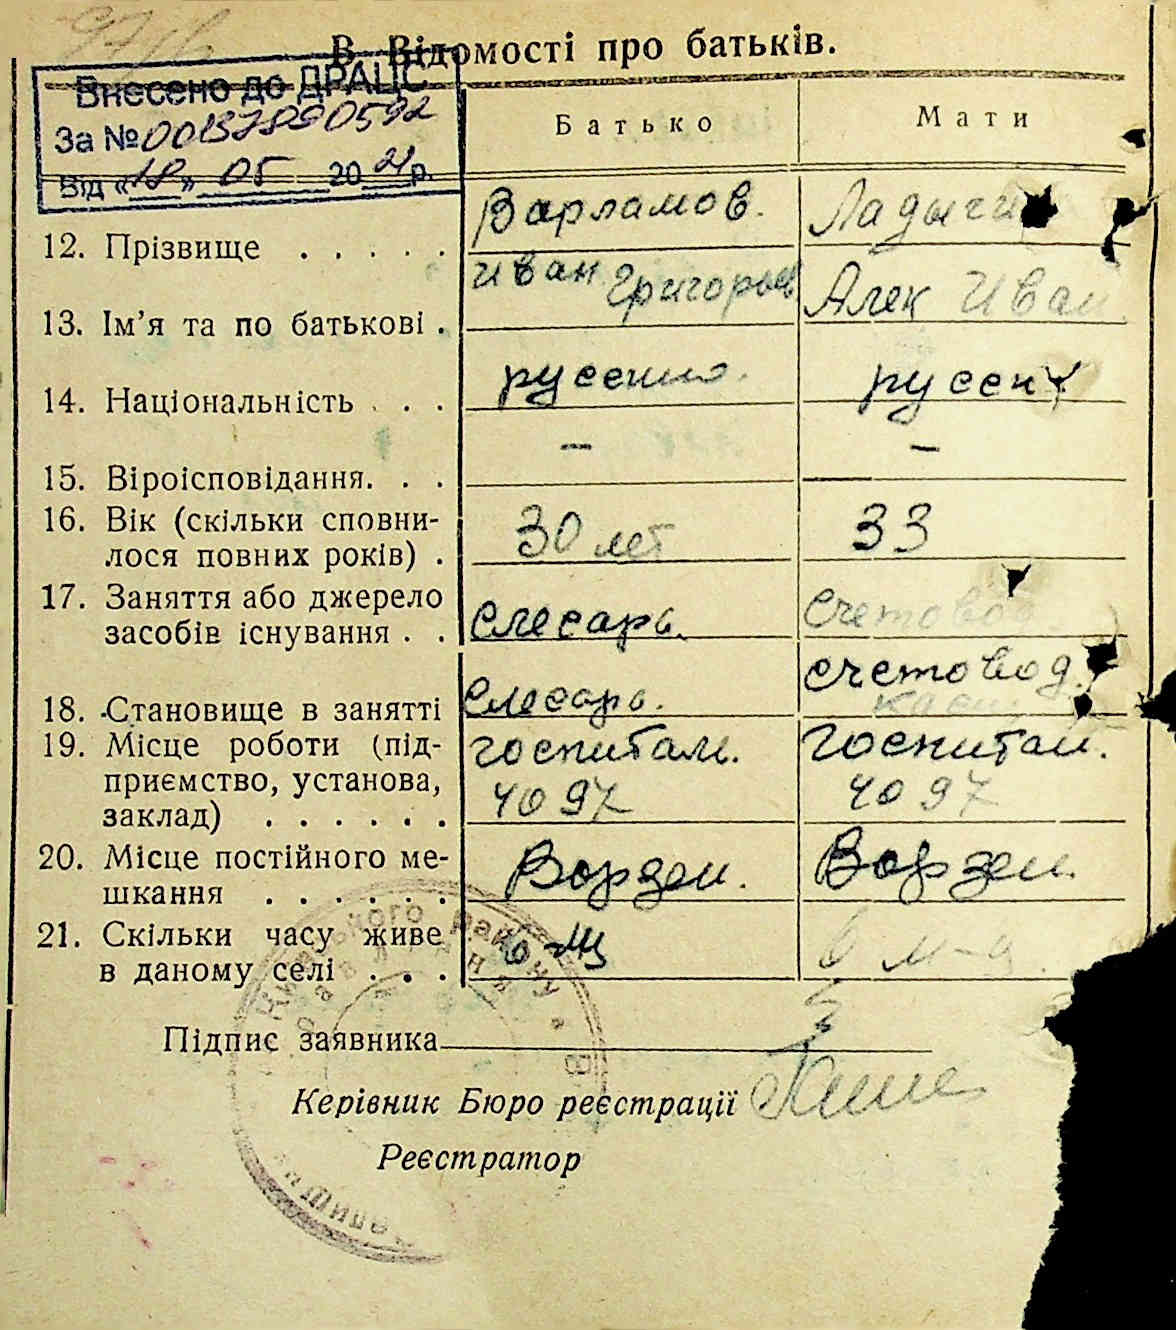 В. Відомості про батьків.
Внесено до ДРАЦС
За № 00137890592
Від «18» 05 2021 р.
Батько Мати
12. Прізвище . . . . . Варламов.
13. Ім’я та по батькові . Иван Григорьев Алек Иван
14. Національність . . . русский.
15. Віроісповідання. . . — —
16. Вік (скільки сповни-
лося повних років) . 30 лет 33
17. Заняття або джерело
засобів існування . . Слесарь. Счетовод
18. Становище в занятті Слесарь. счетовод.
19. Місце роботи (під-
приємство, установа,
заклад) . . . . . . госпиталь. 4097 госпитал. 4097
20. Місце постійного ме-
шкання . . . . . . Ворзель. Ворзель.
21. Скільки часу живе
в даному селі . . . 6 м-ц 6 м-ц.
Підпис заявника
Керівник Бюро реєстрації
Реєстратор